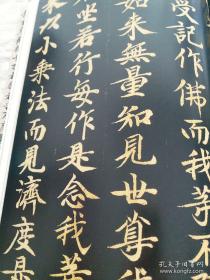 受記作佛而我等不
如來無量知見世尊
坐若行每作是念我等
來以小乘法而見濟度是
孔夫子旧书网